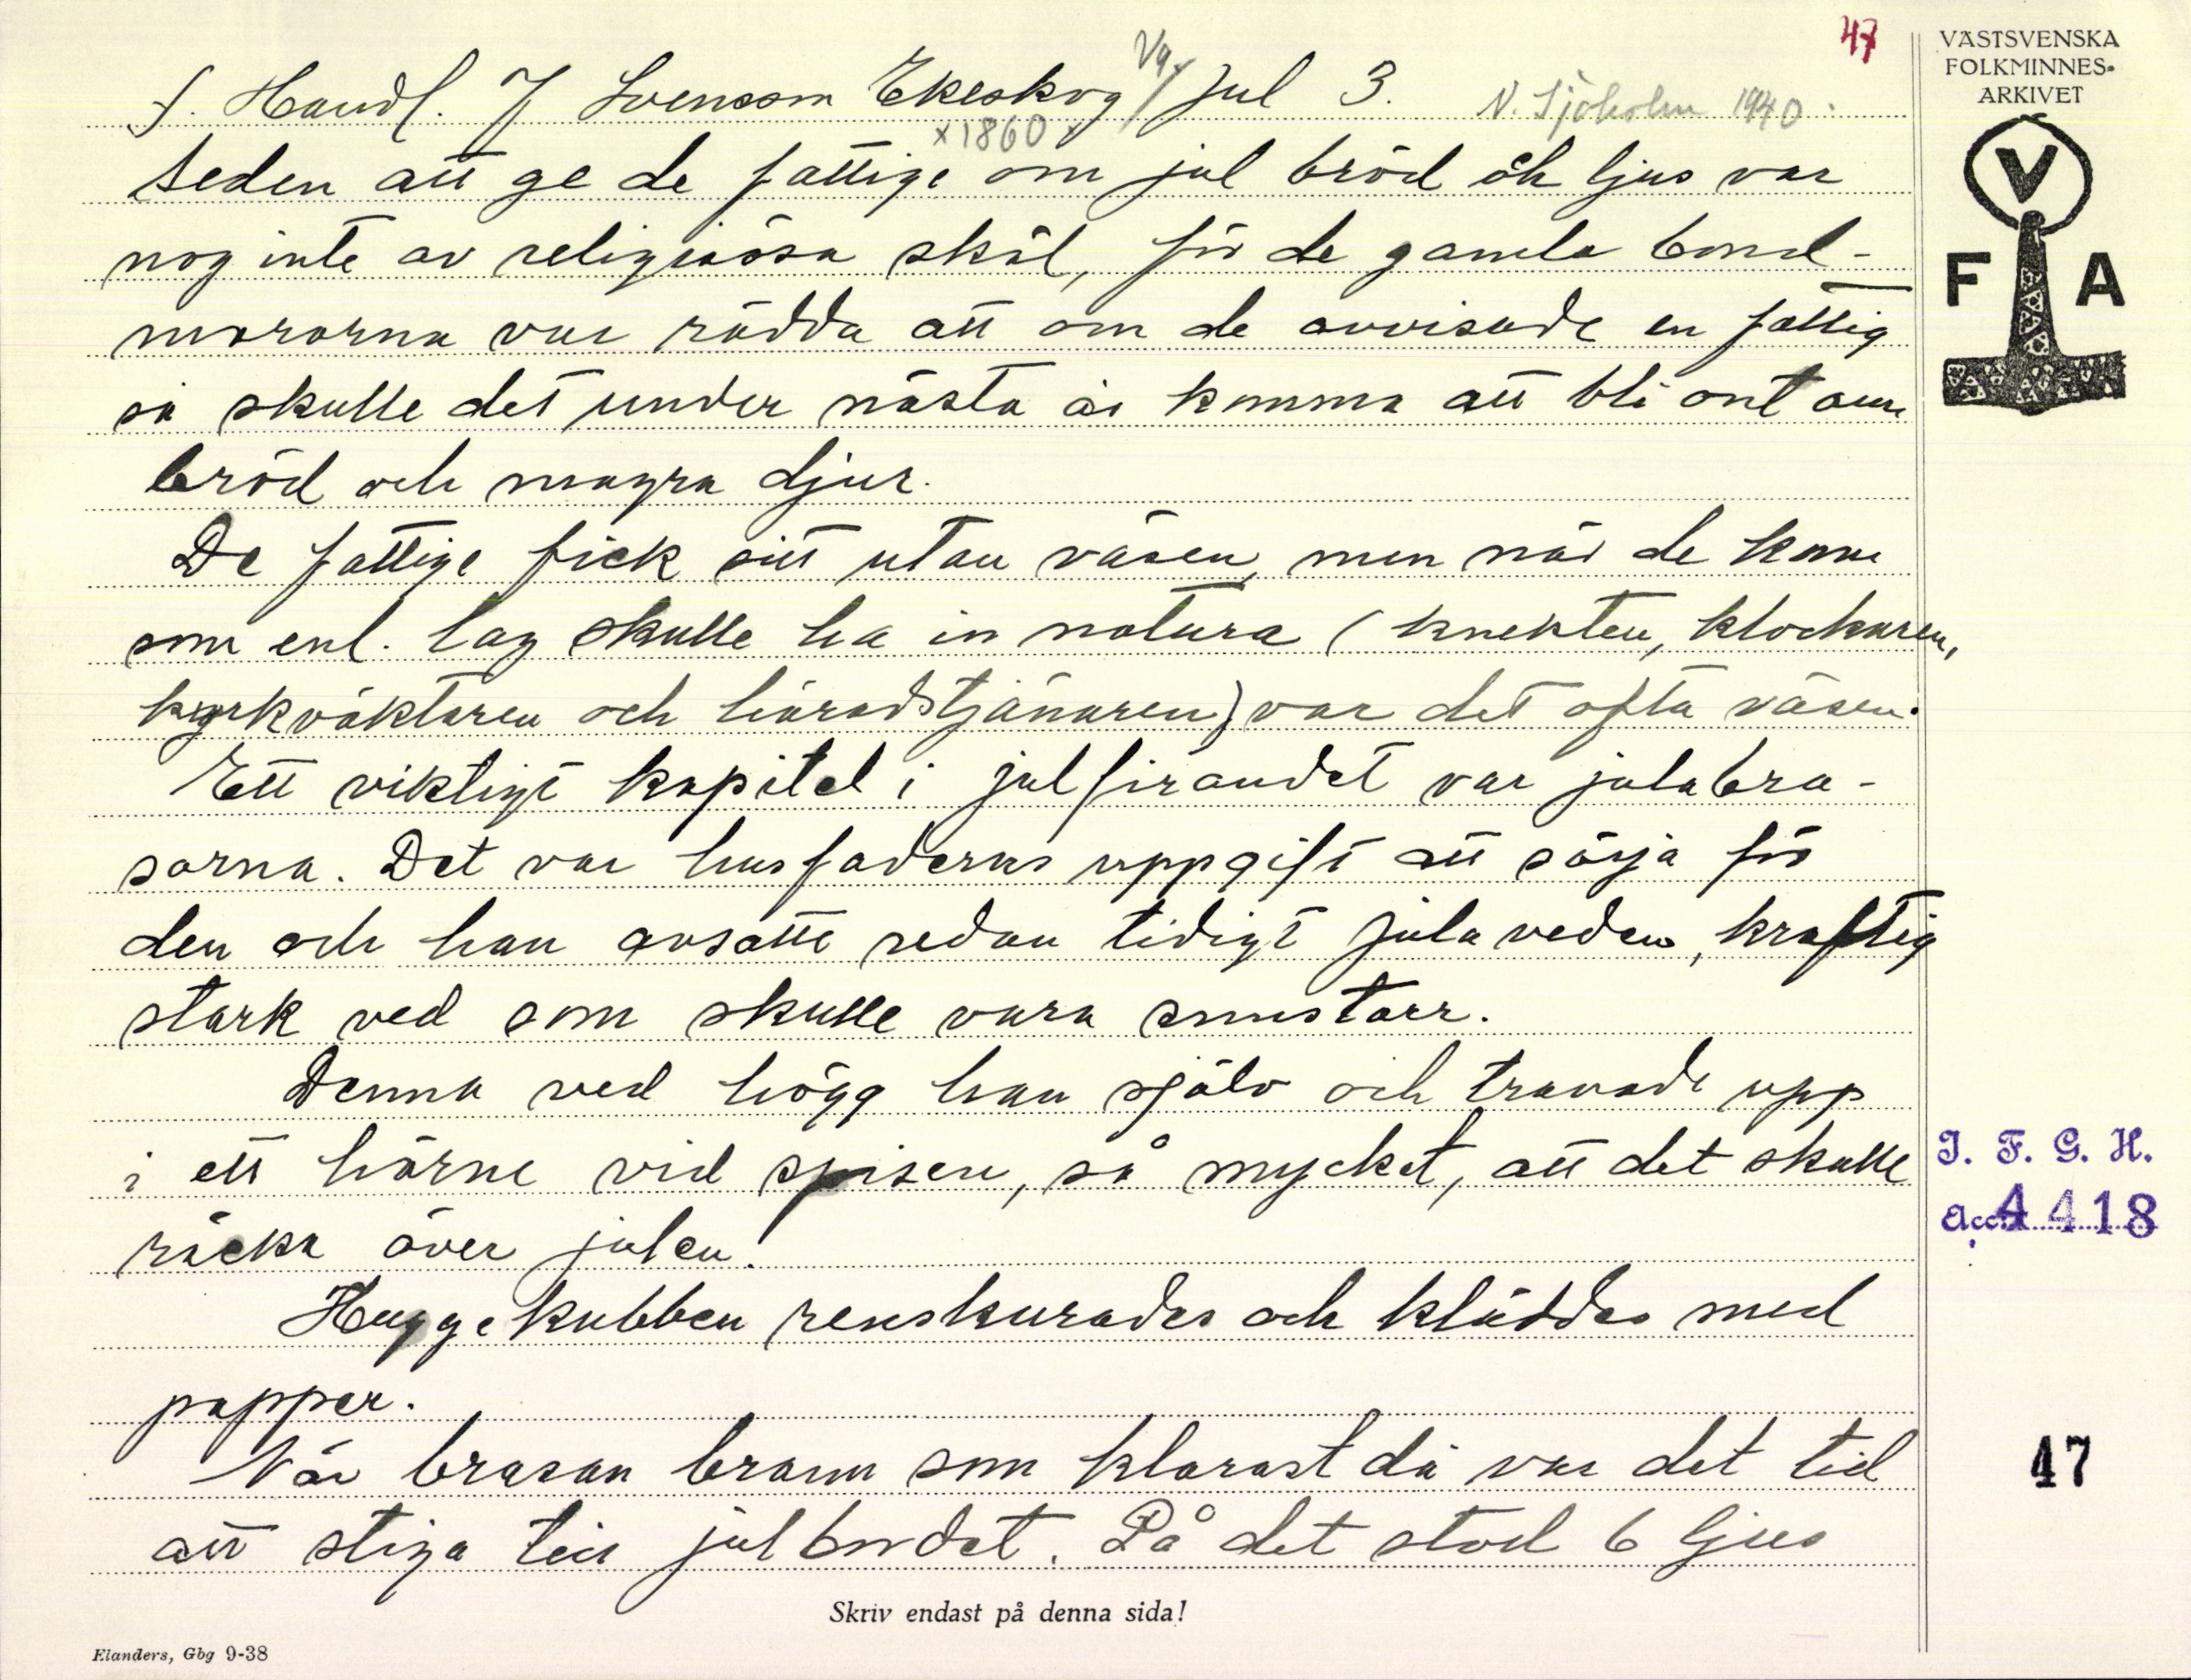 47
VÄSTSVENSKA
FOLKMINNES-
ARKIVET
V
F A
f. Handl. J Svensson Ekeskog Vg. Jul 3. N. Sjöholm 1940.
× 1860
Seden att ge de fattige om jul bröd och ljus var
nog inte av religiösa skäl, för de gamla bond-
mororna var rädda att om de avvisade en fattig
så skulle det under nästa år komma att bli ont om
bröd och magra djur.
De fattige fick sitt utan väsen, men när de kom
som enl. lag skulle ha in natura (knekten, klockaren,
kyrkväktaren och häradstjänaren) var det ofta väsen.
Ett viktigt kapitel i julfirandet var julabra-
sorna. Det var husfaderns uppgift att sörja för
den och han avsatte redan tidigt julaveden, kraftig
stark ved som skulle vara snustorr.
Denna ved högg han själv och travade upp
i ett hörne vid spisen, så mycket, att det skulle
räcka över julen.
Huggekubben renskurades och kläddes med
papper.
När brasan brann som klarast då var det tid
att stiga till julbordet. På det stod 6 ljus
I. F. G. H.
Acc. 4418
47
Skriv endast på denna sida!
Elanders, Gbg 9-38